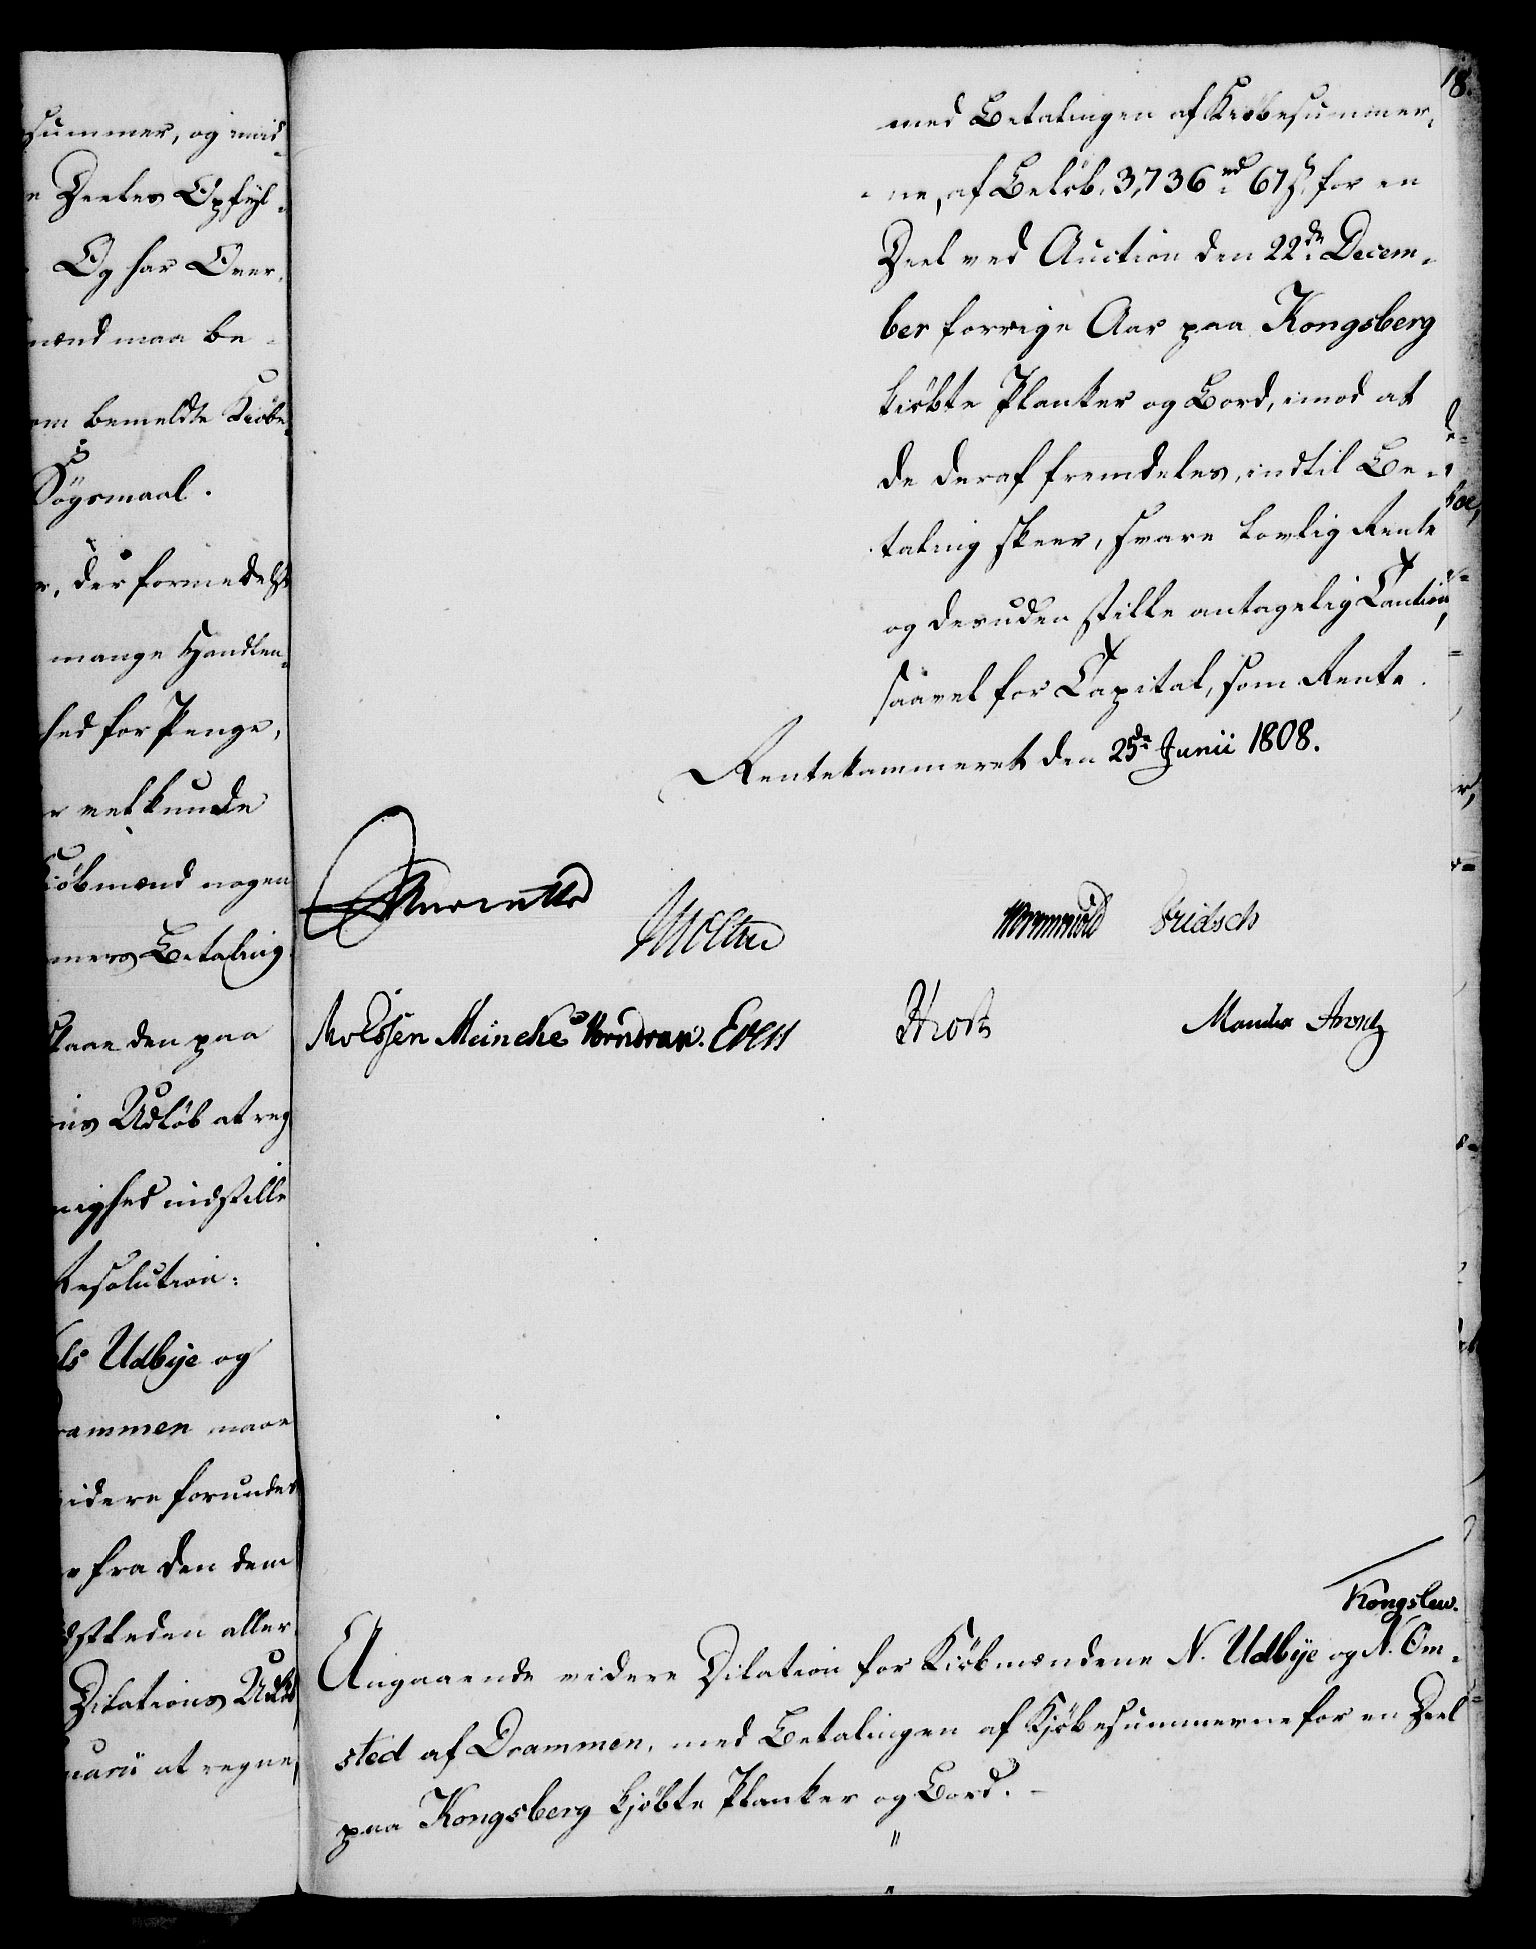 summer, og imid-
Deeles Opfyl-
Og har Over-
mænd maa be-
om bemeldte Kiöbe-
Sögsmaal.
der formedelst
mange Handlen-
hed for Penge,
vel kunde
Kiöbmænd nogen
mers Betaling
staae den paa
Udlöb at reg
righed indstille
Resolution:
ls Udbye og
rammen maae
videre forundes
fra den dem
aller
Dilations Udlöb
uarii at regne,
18.
med Betalingen af Kiöbesummer-
ne, af Belöb 3,736 rd 67 s, for en
Deel ved Auction den 22de Decem-
ber forrige Aar paa Kongsberg
kiöbte Planker og Bord, imod at
de deraf fremdeles, indtil Be-
taling skeer, svare lovlig Rente
og desuden stille antagelig Caution,
saavel for Capital, som Rente.
Rentekammeret den 25de Junii 1808.
Reventlow
Moltke Wormskiold Fridsch
Meinche Vondran. Evers
Kongslew.
Angaaende videre Dilation for Kiöbmændene N. Udbye og N. Om-
sted af Drammen, med Betalingen af Kjöbesummerne for en Deel
paa Kongsberg kjöbte Planker og Bord.